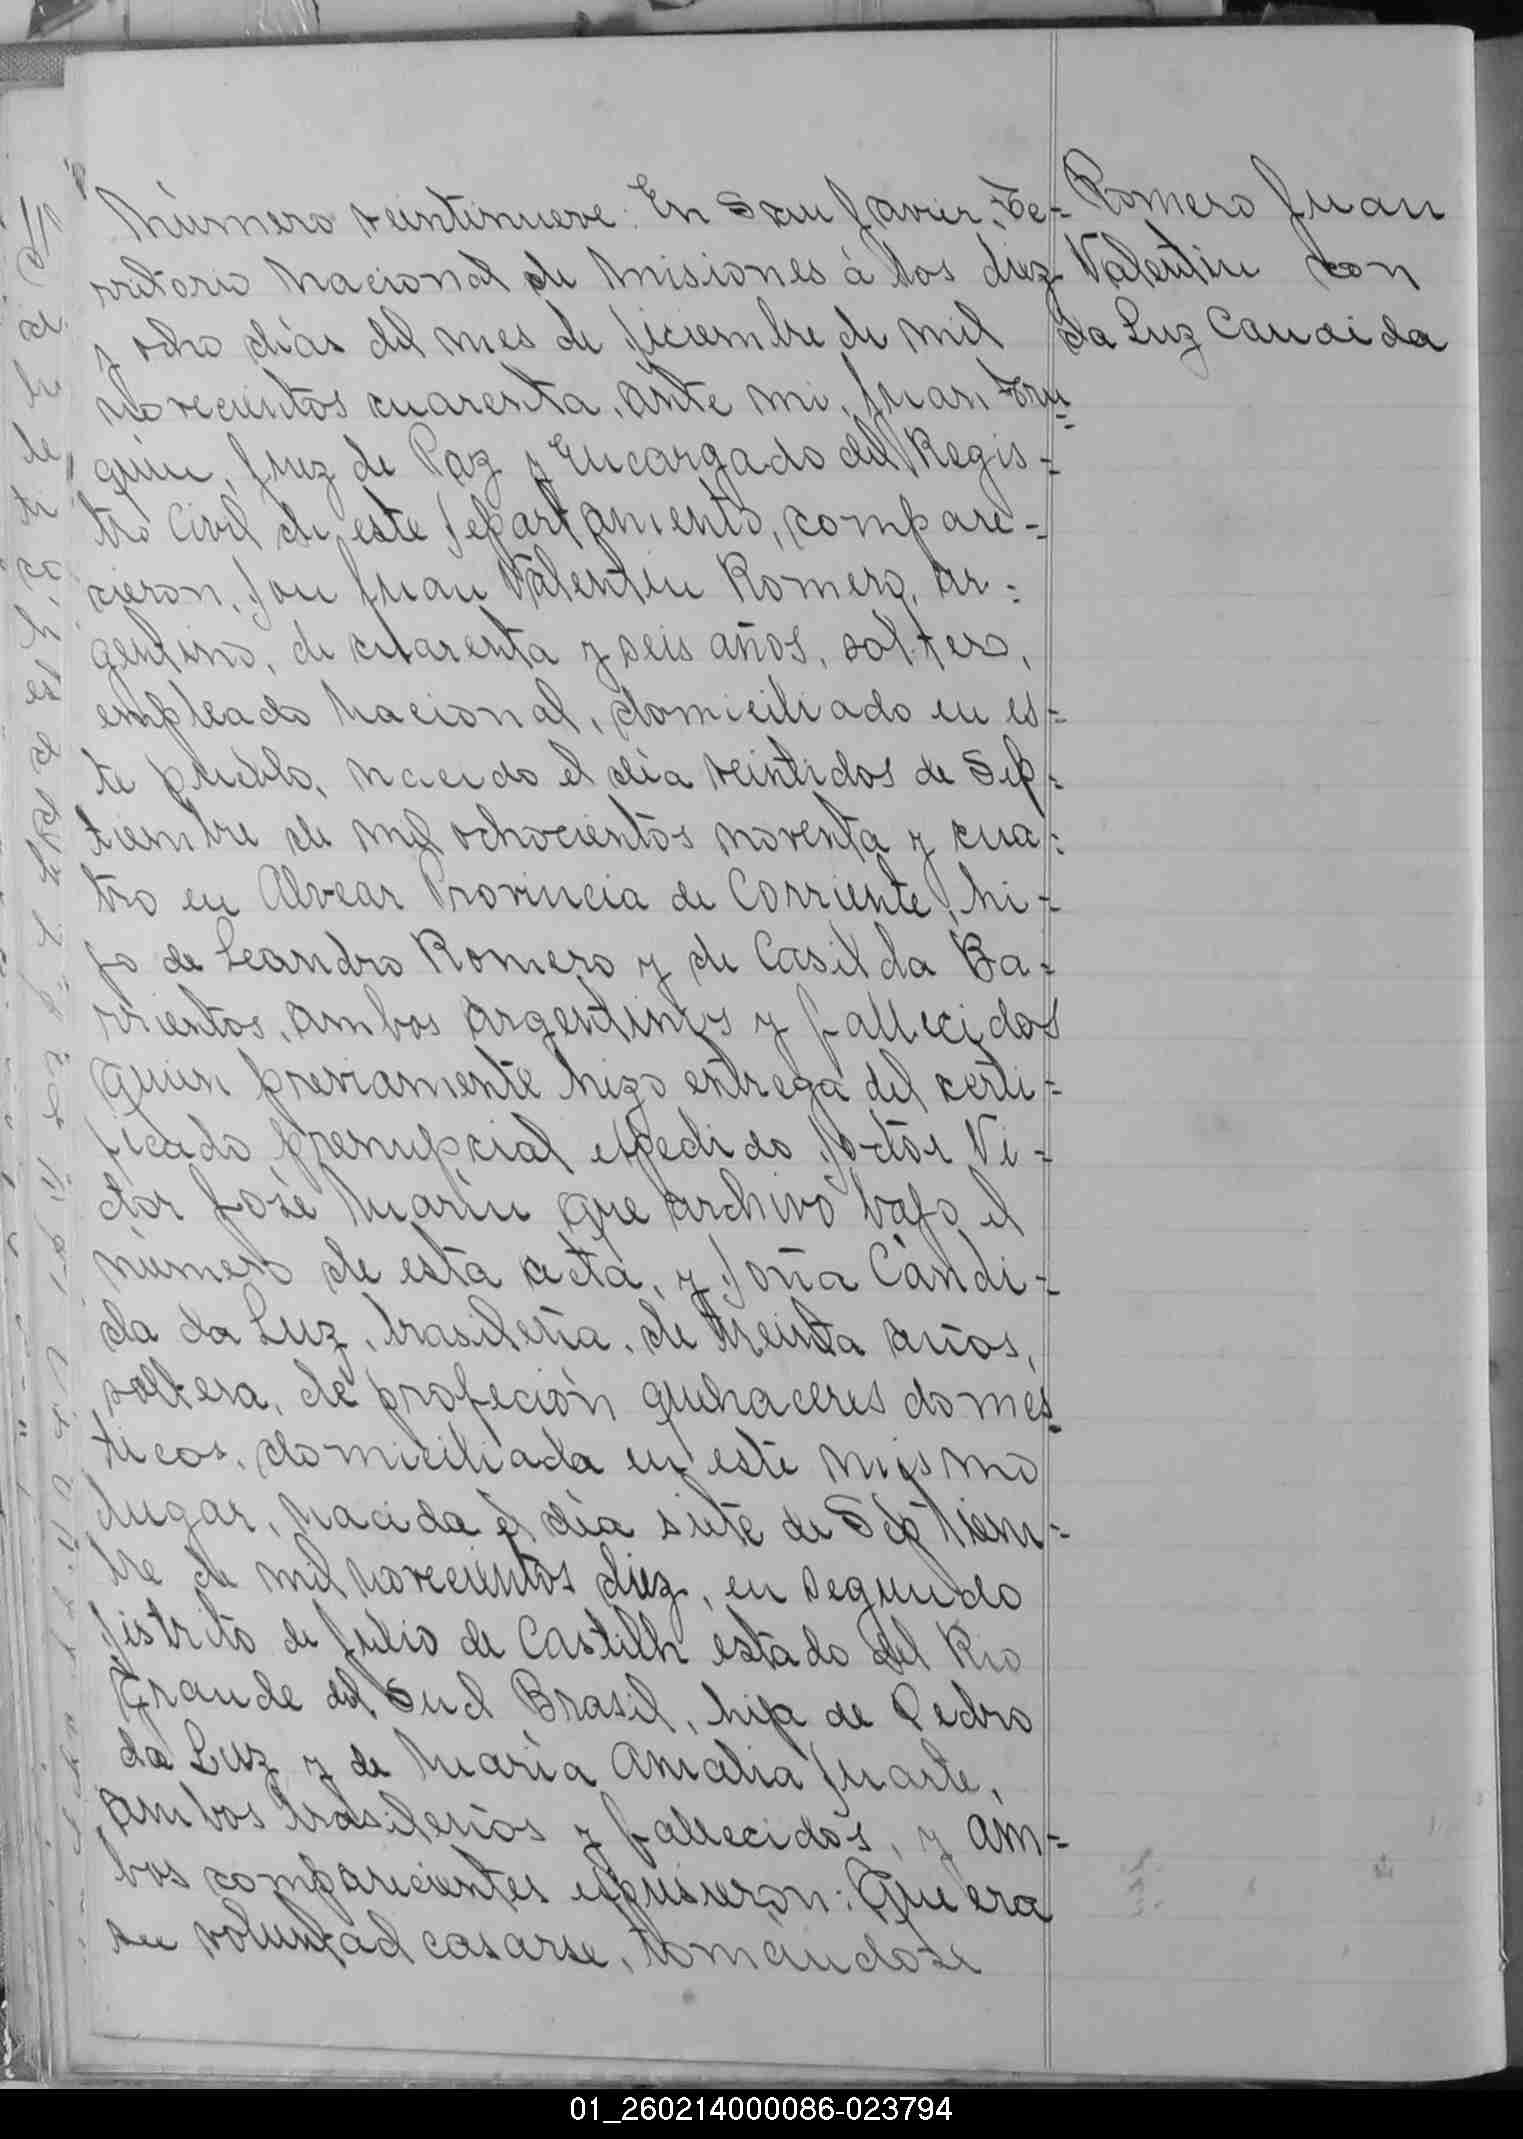 Número veintinueve. En San Javier, Te-
rritorio Nacional de Misiones á los diez
y ocho días del mes de Diciembre de mil
novecientos cuarenta, ante mi, Juan
Juez de Paz y Encargado del Regis-
tro Civil de este Departamento, compare-
cieron, Don Juan Valentin Romero, ar-
gentino, de cuarenta y seis años, soltero,
empleado Nacional, domiciliado en es-
te pueblo, nacido el día veintidos de Sep-
tiembre de mil ochocientos noventa y cua-
tro en Alvear Provincia de Corriente, hi-
jo de Leandro Romero y de Casilda Ba-
rrientos, ambos argentinos y fallecidos
quien previamente hizo entrega del certi-
ficado prenupcial espedido Doctor Vi-
ctor José Marín que archivo bajo el
número de esta acta, y Doña Cándi-
da da Luz, brasileña, de treinta años,
soltera, de profeción quehaceres domés-
ticos, domiciliada en este mismo
lugar, nacida el día siete de Septiem-
bre de mil novecientos diez, en segundo
Distrito de Julio de Castilh estado del Rio
Grande del Sud Brasil, hija de Pedro
da Luz y de María Amalia Duarte,
ambos brasileños y fallecidos, y am-
bos comparecientes espusieron: Que era
su voluntad casarse, tomandose
Romero Juan
Valentin con
da Luz Candida
01_260214000086-023794